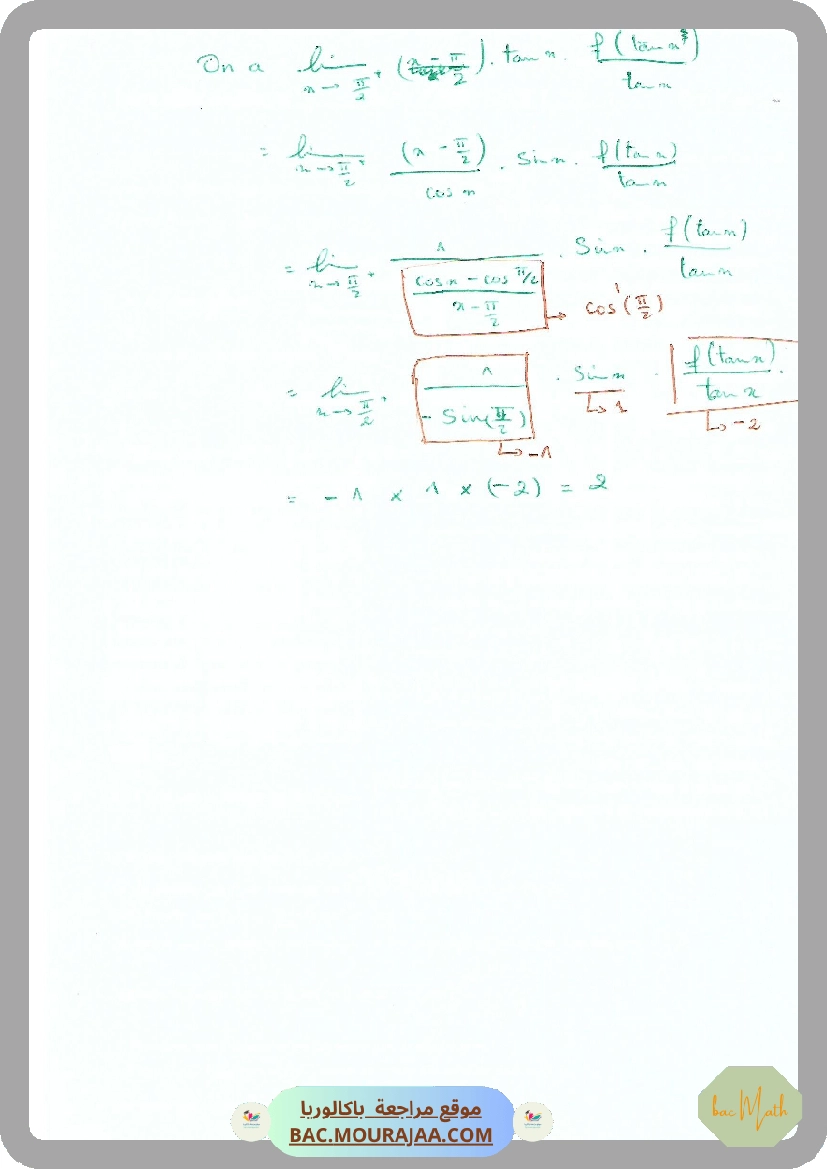 On a lim x→π/2⁺ (x - π/2) . tan x . f(tan x)/tan x
= lim x→π/2⁺ (x - π/2)/cos x . Sin x . f(tan x)/tan x
= lim x→π/2⁺ 1/((cos x - cos π/2)/(x - π/2)) . Sin x . f(tan x)/tan x
→ cos'(π/2)
= lim x→π/2⁺ 1/(- Sin(π/2)) . Sin x . f(tan x)/tan x .
↳ -1 ↳ 1 ↳ -2
= -1 × 1 × (-2) = 2
موقع مراجعة باكالوريا
BAC.MOURAJAA.COM
bac Math